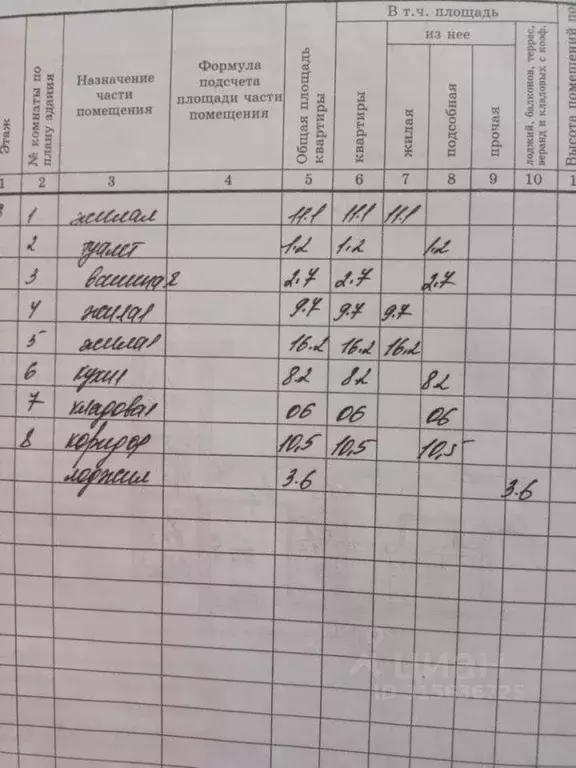 В т.ч. площадь
из нее
Этаж
№ комнаты по плану здания
Назначение части помещения
Формула подсчета площади части помещения
Общая площадь квартиры
квартиры
жилая
подсобная
прочая
лоджий, балконов, террас, веранд и кладовых с коэф.
Высота помещений по
1 2 3 4 5 6 7 8 9 10 1
1 жилая 11.1 11.1 11.1
2 туалет 1.2 1.2 1.2
3 ванная 2.7 2.7 2.7
4 жилая 9.7 9.7 9.7
5 жилая 16.2 16.2 16.2
6 кухня 82 82 82
7 кладовая 06 06 06
8 коридор 10,5 10,5 10,5
лоджия 3.6 3.6
циан